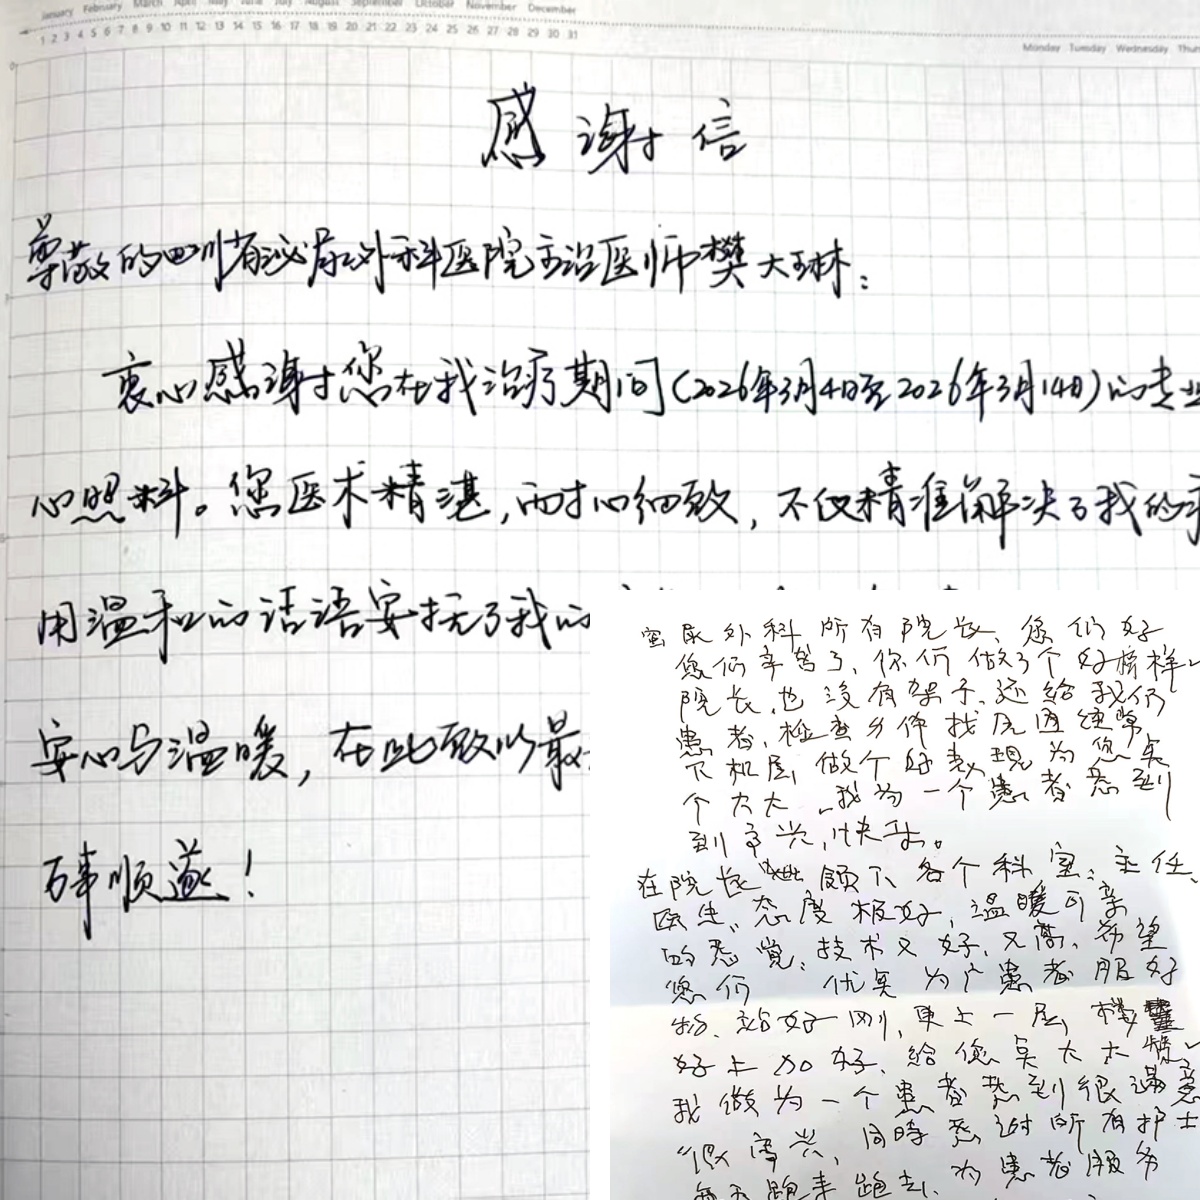 January February March April May June July August September October November December
1 2 3 4 5 6 7 8 9 10 11 12 13 14 15 16 17 18 19 20 21 22 23 24 25 26 27 28 29 30 31
Monday Tuesday Wednesday Thu
感谢信
尊敬的四川省泌尿外科医院主治医师樊大琳：
衷心感谢您在我治疗期间(2026年3月4日至2026年3月14日)的专业
心照料。您医术精湛，而耐心细致，不仅精准解决了我的
用温和的话语安抚了我的
安心与温暖，在此致以最
万事顺遂！
尿外科所有院长、您们好
您们辛苦了，你们做了个好榜样
院长，也没有架子，还给我们
患者，检查身体找
做个好表现为您点
个大大 我为一个患者感到
到高兴，快乐。
在院长 领下各个科室：主任、
医生、态度极好，温暖可亲
的感觉，技术又好、又高，希望
您们 优质为广患者服好
务、 更上一层楼
好上加好，给您点大大赞
我做为一个患者感到很满意
很高兴，同时感谢所有护士
每天跑来跑去，为患者服务